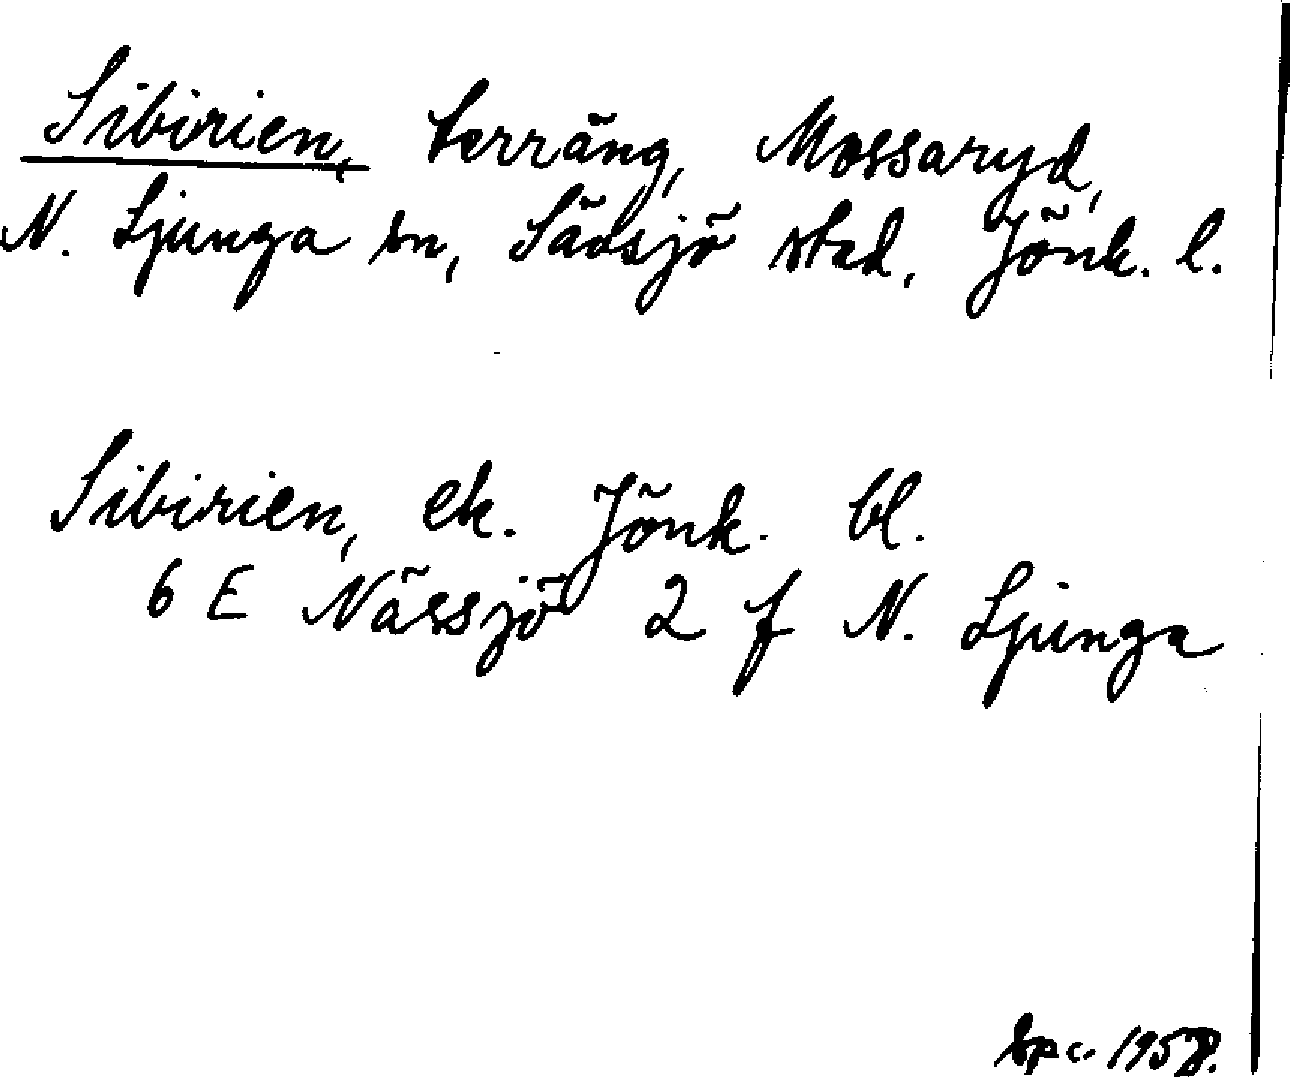 Sibirien, terräng, Mossaryd,
N. Ljunga sn, Sävsjö stad, Jönk. l.
Sibirien, ek. Jönk. bl.
6 E Nässjö 2 f N. Ljunga
1958.